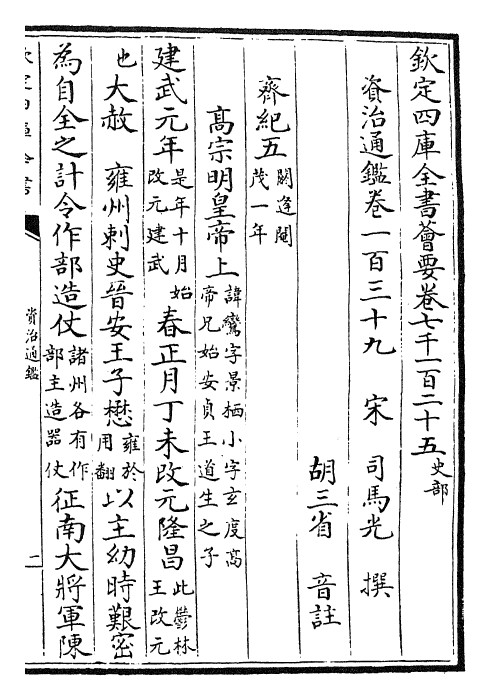 欽定四庫全書薈要卷七千一百二十五史部
資治通鑑卷一百三十九 宋 司馬光 撰
胡三省 音註
齊紀五閼逢閹茂一年
高宗明皇帝上諱鸞字景栖小字玄度高帝兄始安貞王道生之子
建武元年是年十月始改元建武春正月丁未改元隆昌此鬱林王改元
也大赦 雍州刺史晉安王子懋雍於用翻以主幼時艱密
為自全之計令作部造仗諸州各有作部主造器仗征南大將軍陳
資治通鑑